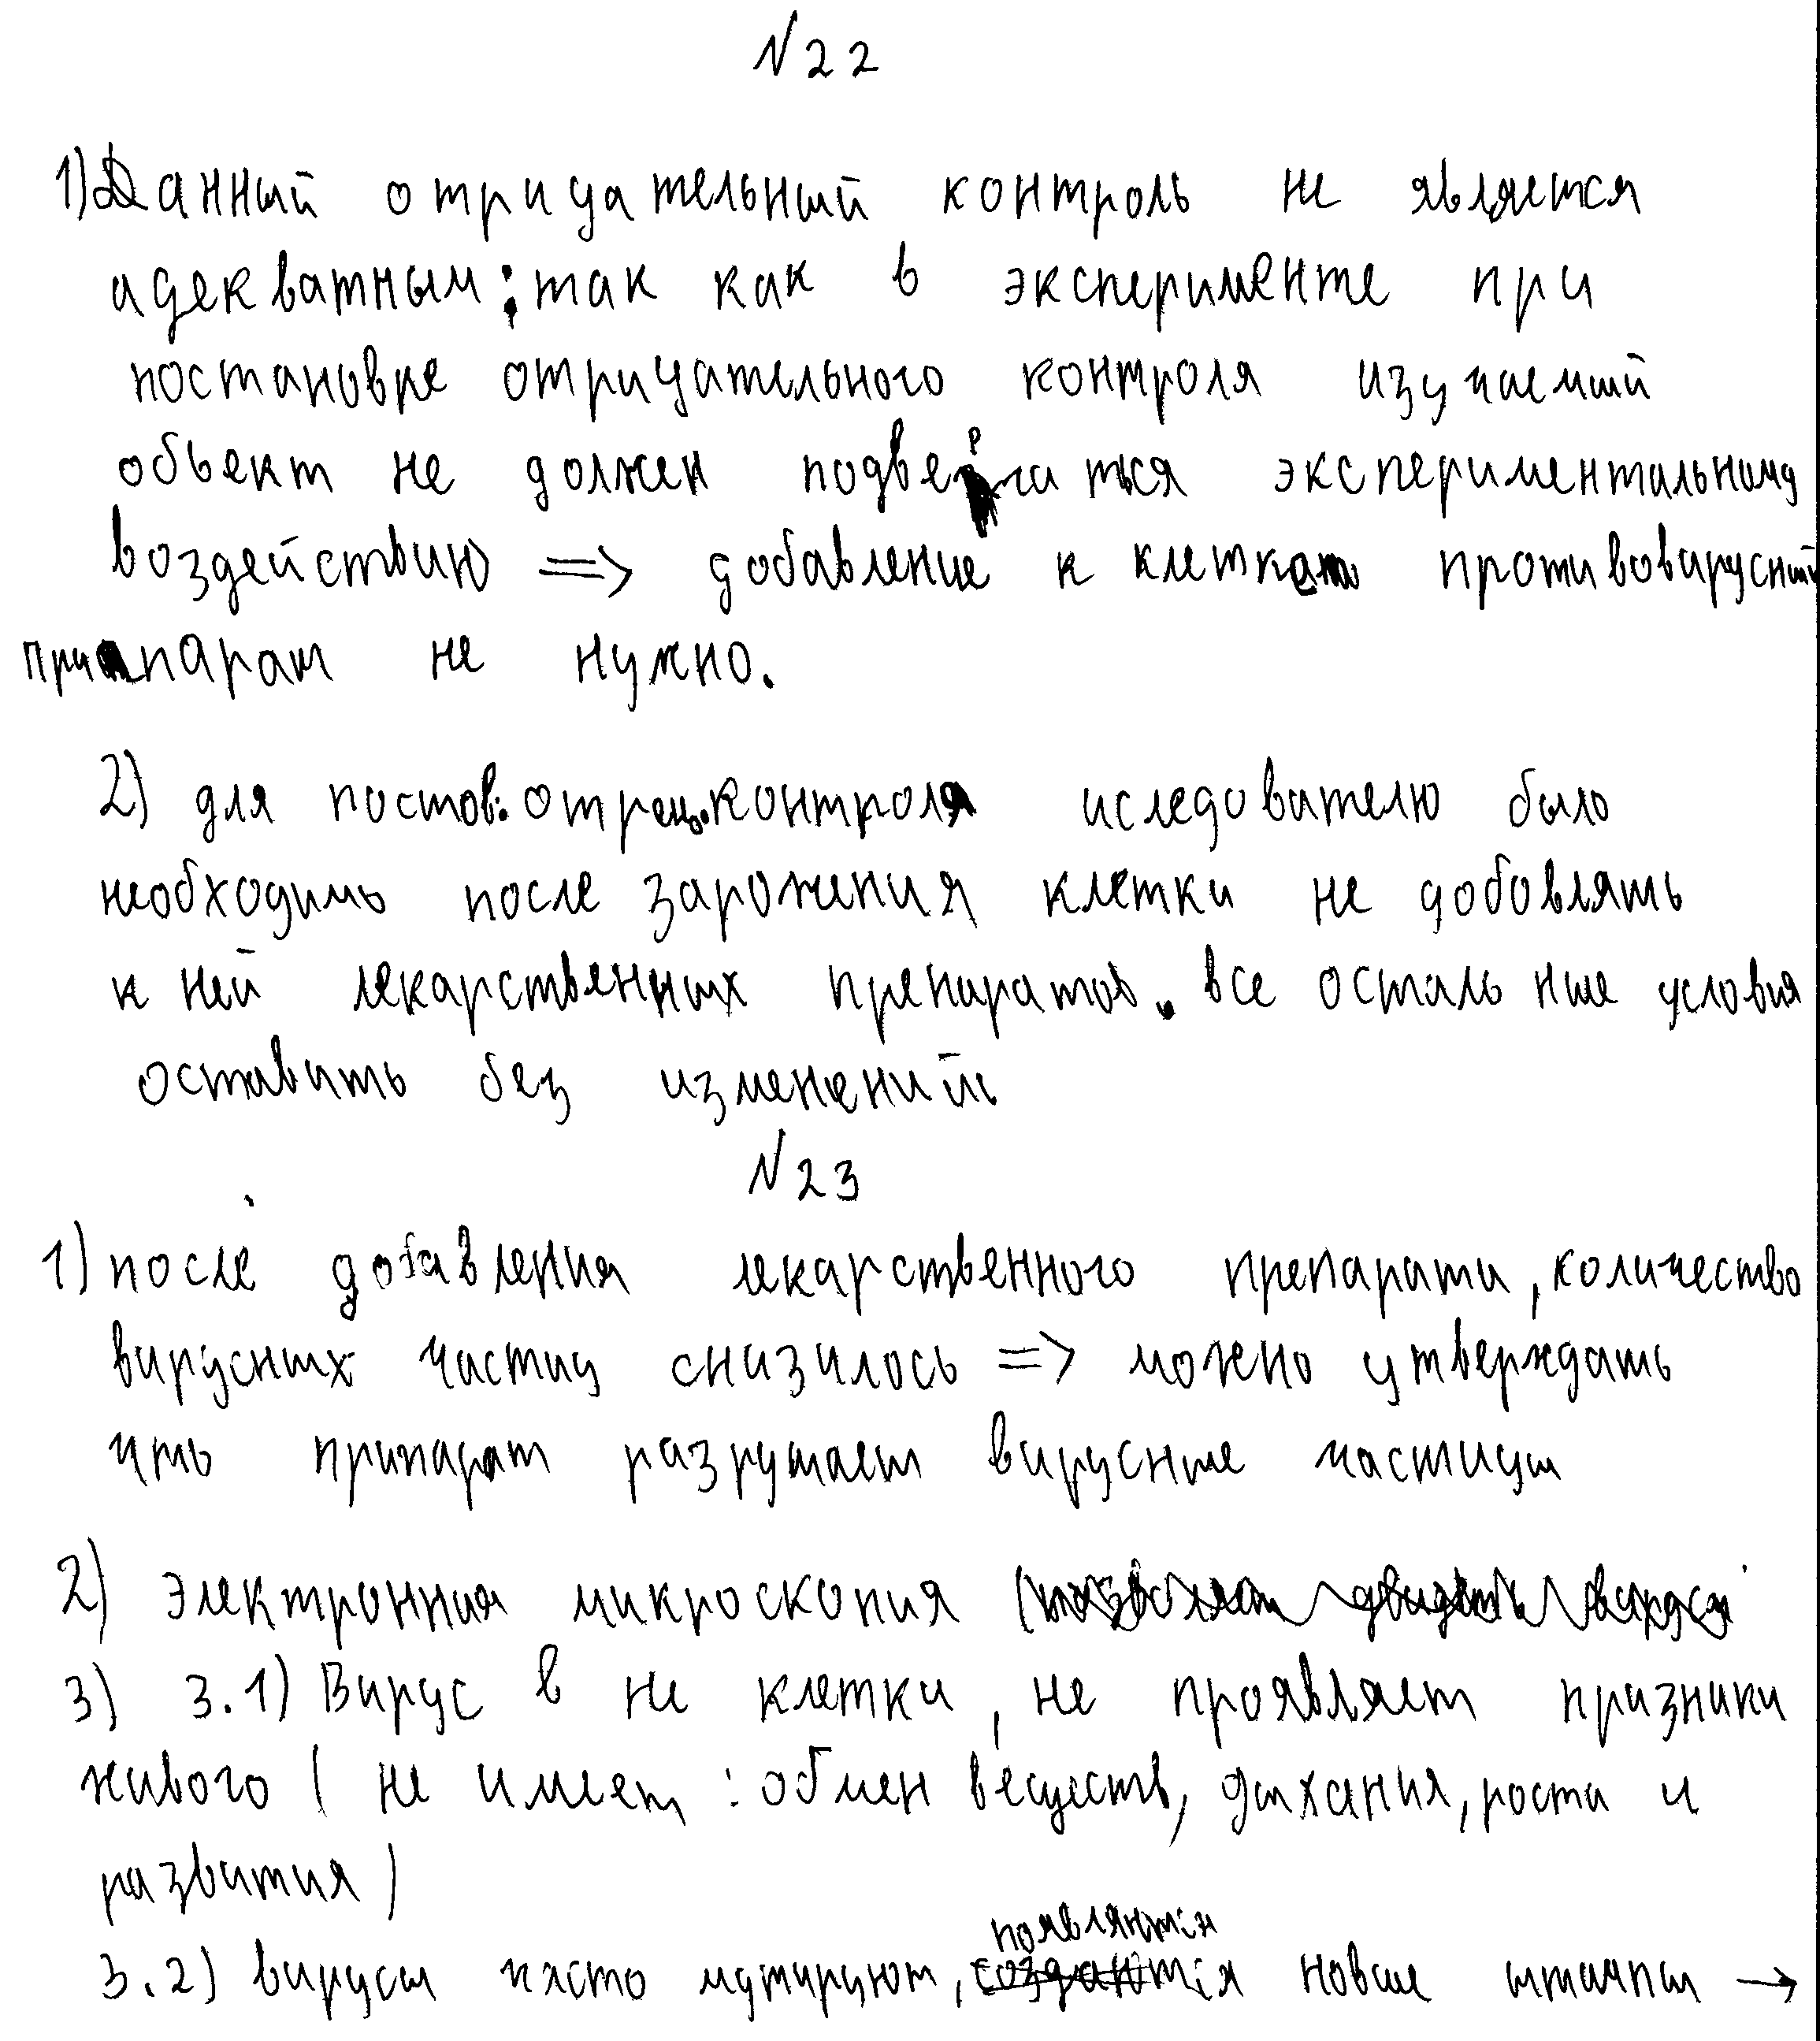 N22
1) Данный отрицательный контроль не является
адекватным; так как в эксперименте при
постановке отрицательного контроля изучаемый
объект не должен подвергаться экспериментальному
воздействию => добавление к клеткам противовирусный
припарат не нужно.
2) для постов. отриц. контроля иследователю было
необходимо после заражения клетки не добовлять
к ней лекарственных препаратов. все остальные условия
оставить без изменений.
N23
1) после добавления лекарственного препарата, количество
вирусных частиц снизилось => можно утверждать
что припарат разрушает вирусные частицы
2) электронная микроскопия
3) 3.1) Вирус в не клетки, не проявляет признаки
живого ( не имеет : обмен веществ, дыхания, роста и
развития)
появляются
3.2) вирусы часто мутируют, создаются новые штаммы →